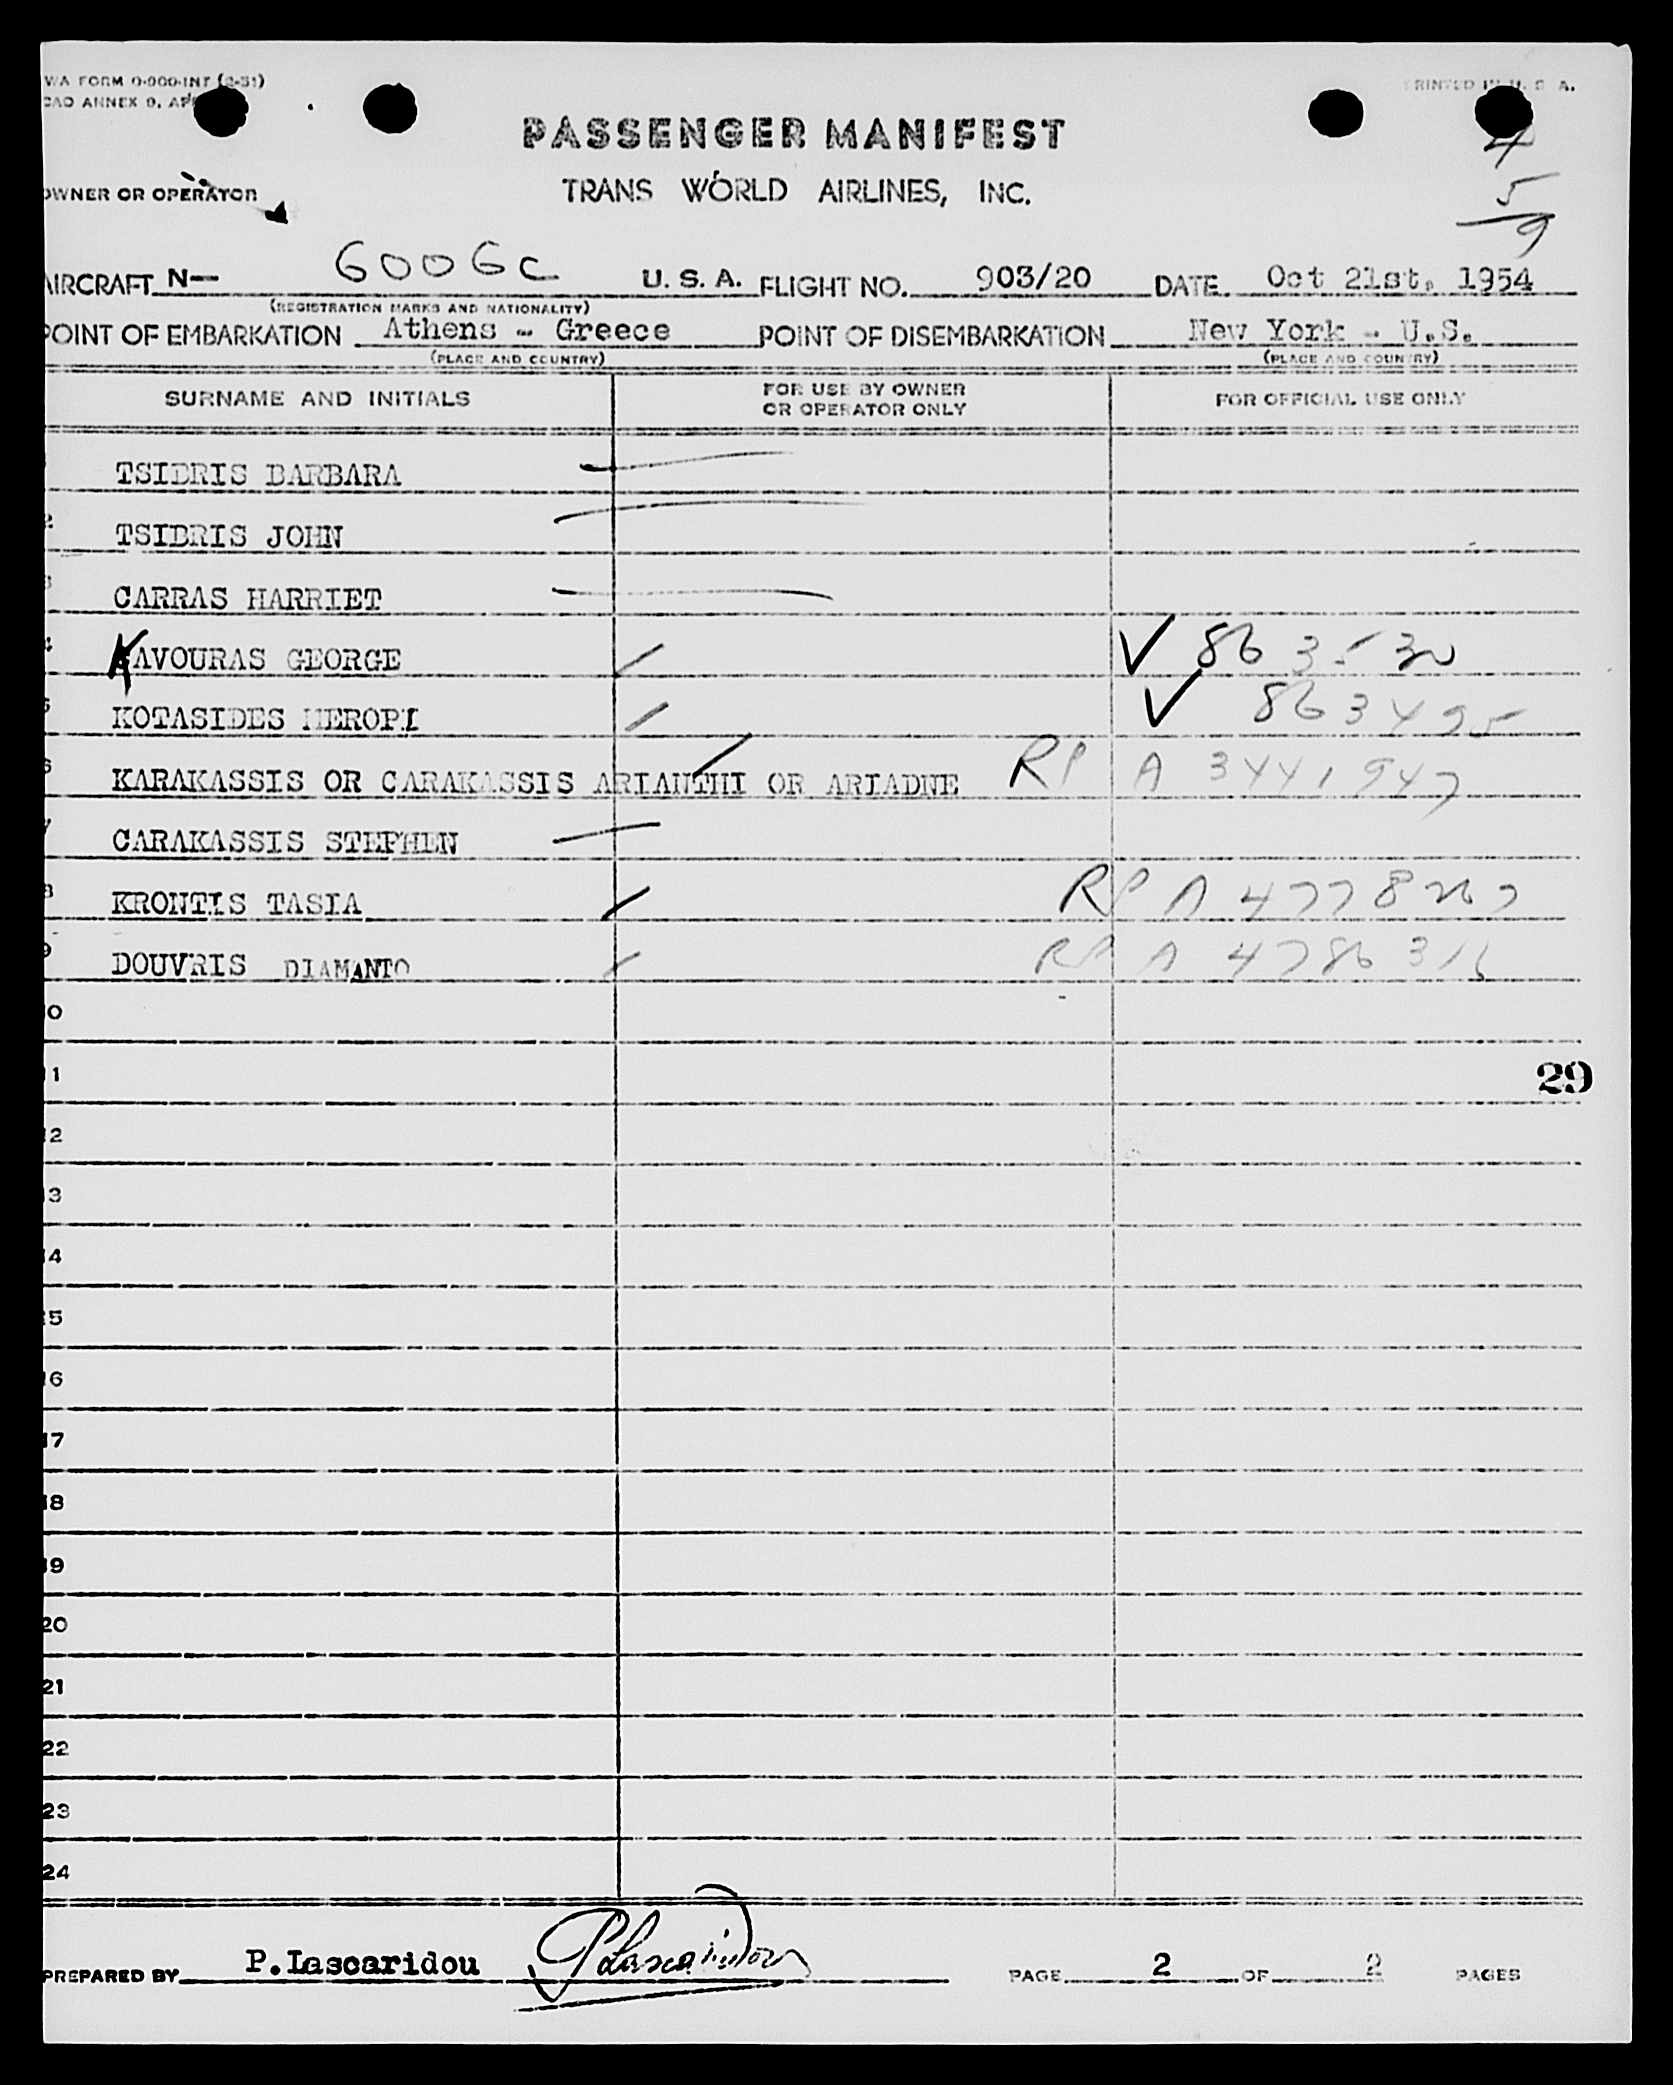 WA FORM 0-900-INT (2-51)
CAO ANNEX 9, AP
PRINTED IN U. S. A.
PASSENGER MANIFEST
4
OWNER OR OPERATOR
TRANS WORLD AIRLINES, INC.
5
9
AIRCRAFT N— 6006C U. S. A. FLIGHT NO. 903/20 DATE Oct 21st. 1954
(REGISTRATION MARKS AND NATIONALITY)
POINT OF EMBARKATION Athens - Greece POINT OF DISEMBARKATION New York - U.S.
(PLACE AND COUNTRY) (PLACE AND COUNTRY)
SURNAME AND INITIALS FOR USE BY OWNER OR OPERATOR ONLY FOR OFFICIAL USE ONLY
TSIBRIS BARBARA
2 TSIBRIS JOHN
3 CARRAS HARRIET
4 KAVOURAS GEORGE ✓ 863530
5 KOTASIDES MEROPI ✓ 863495
6 KARAKASSIS OR CARAKASSIS ARIANTHI OR ARIADNE RP A 3441947
7 CARAKASSIS STEPHEN
8 KRONTIS TASIA RP A 4778267
9 DOUVRIS DIAMANTO RP A 4786316
10
11 29
12
13
14
15
16
17
18
19
20
21
22
23
24
PREPARED BY P.Lascaridou PLascaridou PAGE 2 OF 2 PAGES